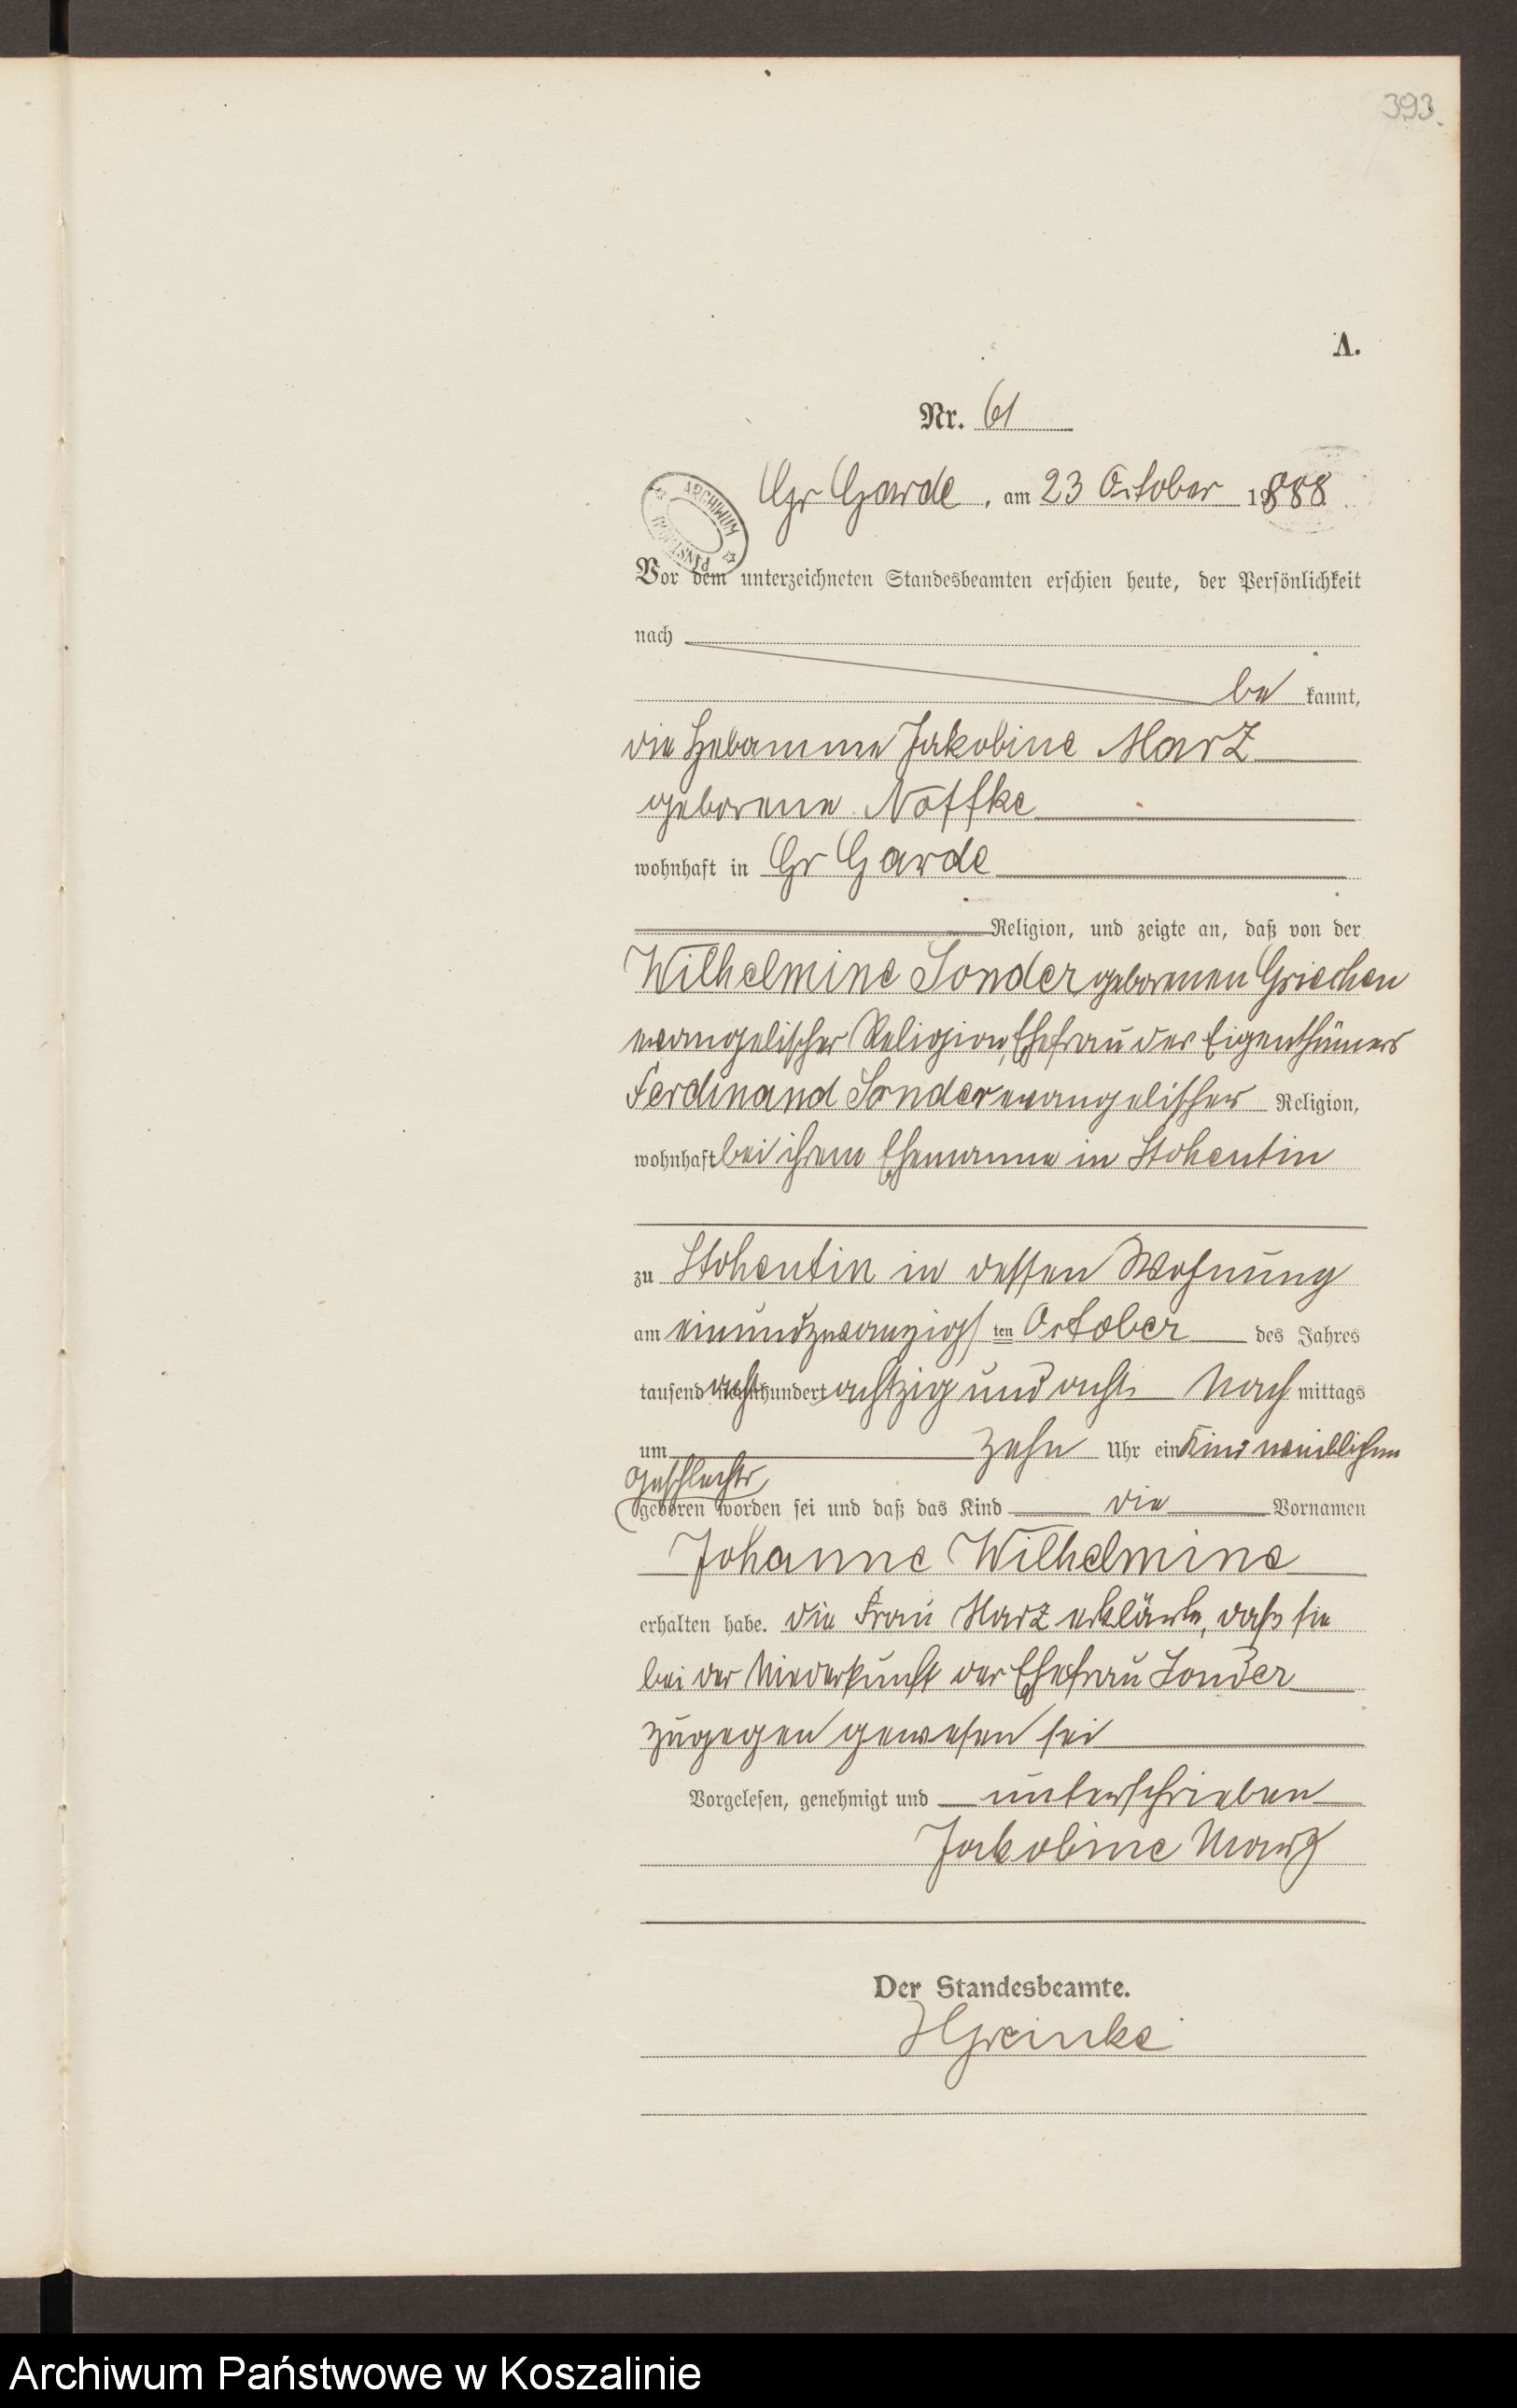 393.
A.
Nr. 61
ARCHIWUM
Gr Garde, am 23 October 1888.
Vor dem unterzeichneten Standesbeamten erschien heute, der Persönlichkeit
nach
be kannt,
die Hebamme Jakobine Marz
geborene Noffke
wohnhaft in Gr Garde
Religion, und zeigte an, daß von der
Wilhelmine Sonder geborenen Griechen
evangelischer Religion, Ehefrau des Eigenthümers
Ferdinand Sonder evangelischer Religion,
wohnhaft bei ihrem Ehemanne in Stohentin
zu Stohentin in dessen Wohnung
am einundzwanzigsten October des Jahres
tausend acht hundert achtzig und acht Nach mittags
um zehn Uhr ein Kind weiblichen
Geschlechts
geboren worden sei und daß das Kind die Vornamen
Johanne Wilhelmine
erhalten habe. die Frau Marz erklärte, daß sie
bei der Niederkunft der Ehefrau Sonder
zugegen gewesen sei
Vorgelesen, genehmigt und unterschrieben
Jakobine Marz
Der Standesbeamte.
Greinke
Archiwum Państwowe w Koszalinie